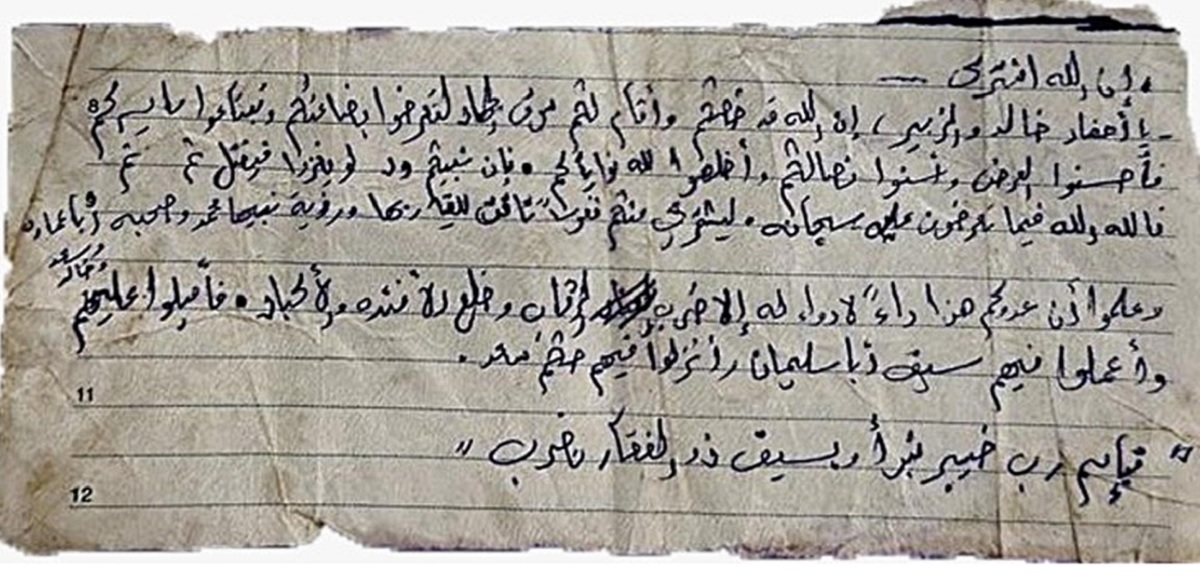 إن الله اشترى —
- يا أحفاد خالد والزبير، إن الله قد خصّكم وأقام لكم سوق الجهاد لتعرضوا بضاعتكم وتبتاعوا بأيديكم
8
فأحسنوا العرض وأحسنوا نضالكم وأخلصوا لله نواياكم. فإن نبيكم ود لو يغزو فيقتل ثم ثم
فالله الله فيما تعرضون عليه سبحانه. ليشتري منكم نفوساً تاقت للقاء ربها ورؤية نبيها محمد وصحبه أبا عمارة
وخالد وسعد
وعلموا أن عدوكم هذا داءً لا دواء له إلا ضرب الرقاب وخلع الأفئدة والأكباد. فأقبلوا عليهم
وأعملوا فيهم سيف أبا سليمان وأنزلوا فيهم حكم سعد.
11
" قبإسم رب خيبر نبرأ وبسيف ذو الفقار نضرب "
12